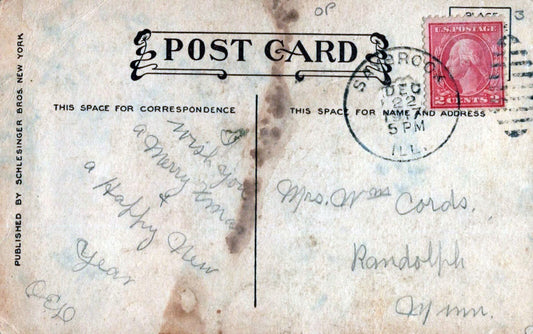 OP
3
PLACE
POST CARD
U.S. POSTAGE
2 CENTS 2
DEC
22
5 PM
ILL.
THIS SPACE FOR CORRESPONDENCE
THIS SPACE FOR NAME AND ADDRESS
PUBLISHED BY SCHLESINGER BROS. NEW YORK.
I wish you
a Merry Xmas
&
a Happy New
Year
Mrs. Wm Cords.
Randolph
Minn.